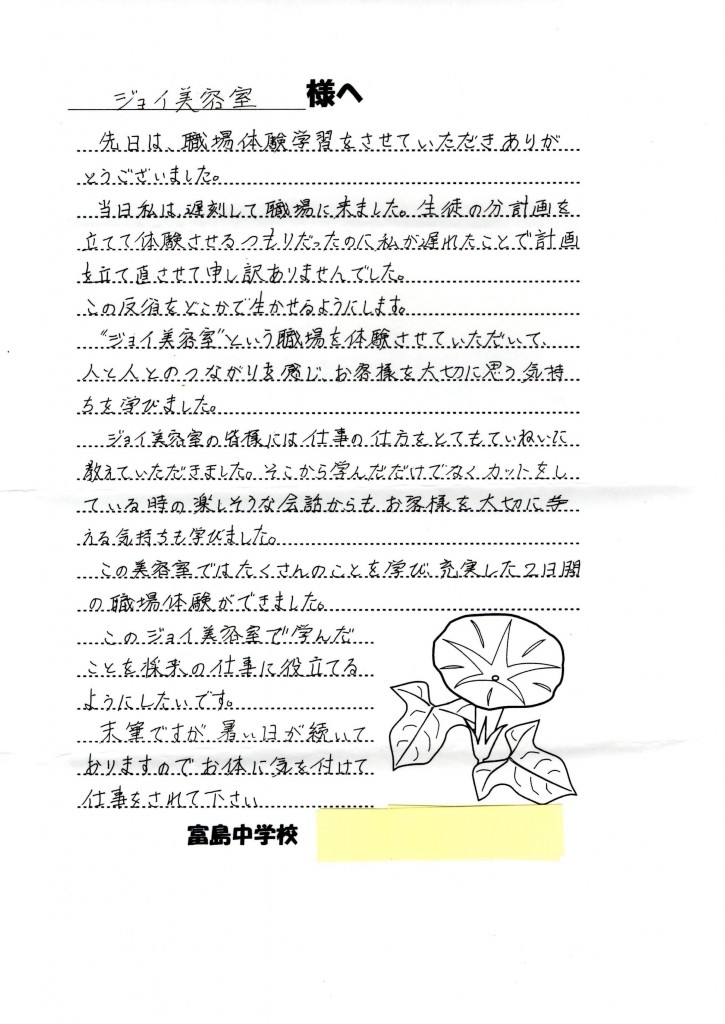 ジョイ美容室 様へ
先日は、職場体験学習をさせていただきありが
とうございました。
当日私は遅刻して職場に来ました。生徒の分計画を
立てて体験させるつもりだったのに私が遅れたことで計画
を立て直させて申し訳ありませんでした。
この反省をどこかで生かせるようにします。
"ジョイ美容室"という職場を体験させていただいて、
人と人とのつながりを感じ、お客様を大切に思う気持
ちを学びました。
ジョイ美容室の皆様には仕事の仕方をとてもていねいに
教えていただきました。そこから学んだだけでなくカットをし
ている時の楽しそうな会話からもお客様を大切に考
える気持ちも学びました。
この美容室ではたくさんのことを学び、充実した2日間
の職場体験ができました。
このジョイ美容室で学んだ
ことを将来の仕事に役立てる
ようにしたいです。
末筆ですが暑い日が続いて
おりますのでお体に気を付けて
仕事をされて下さい
富島中学校